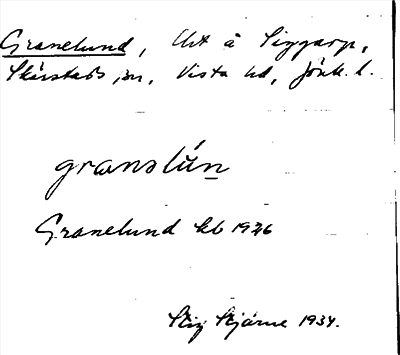 Granelund, Utt å Siggarp,
Skärstads sn, Vista hd, Jönk. l.
granəlún
Granelund kb 1926
Stig Stjärne 1934.